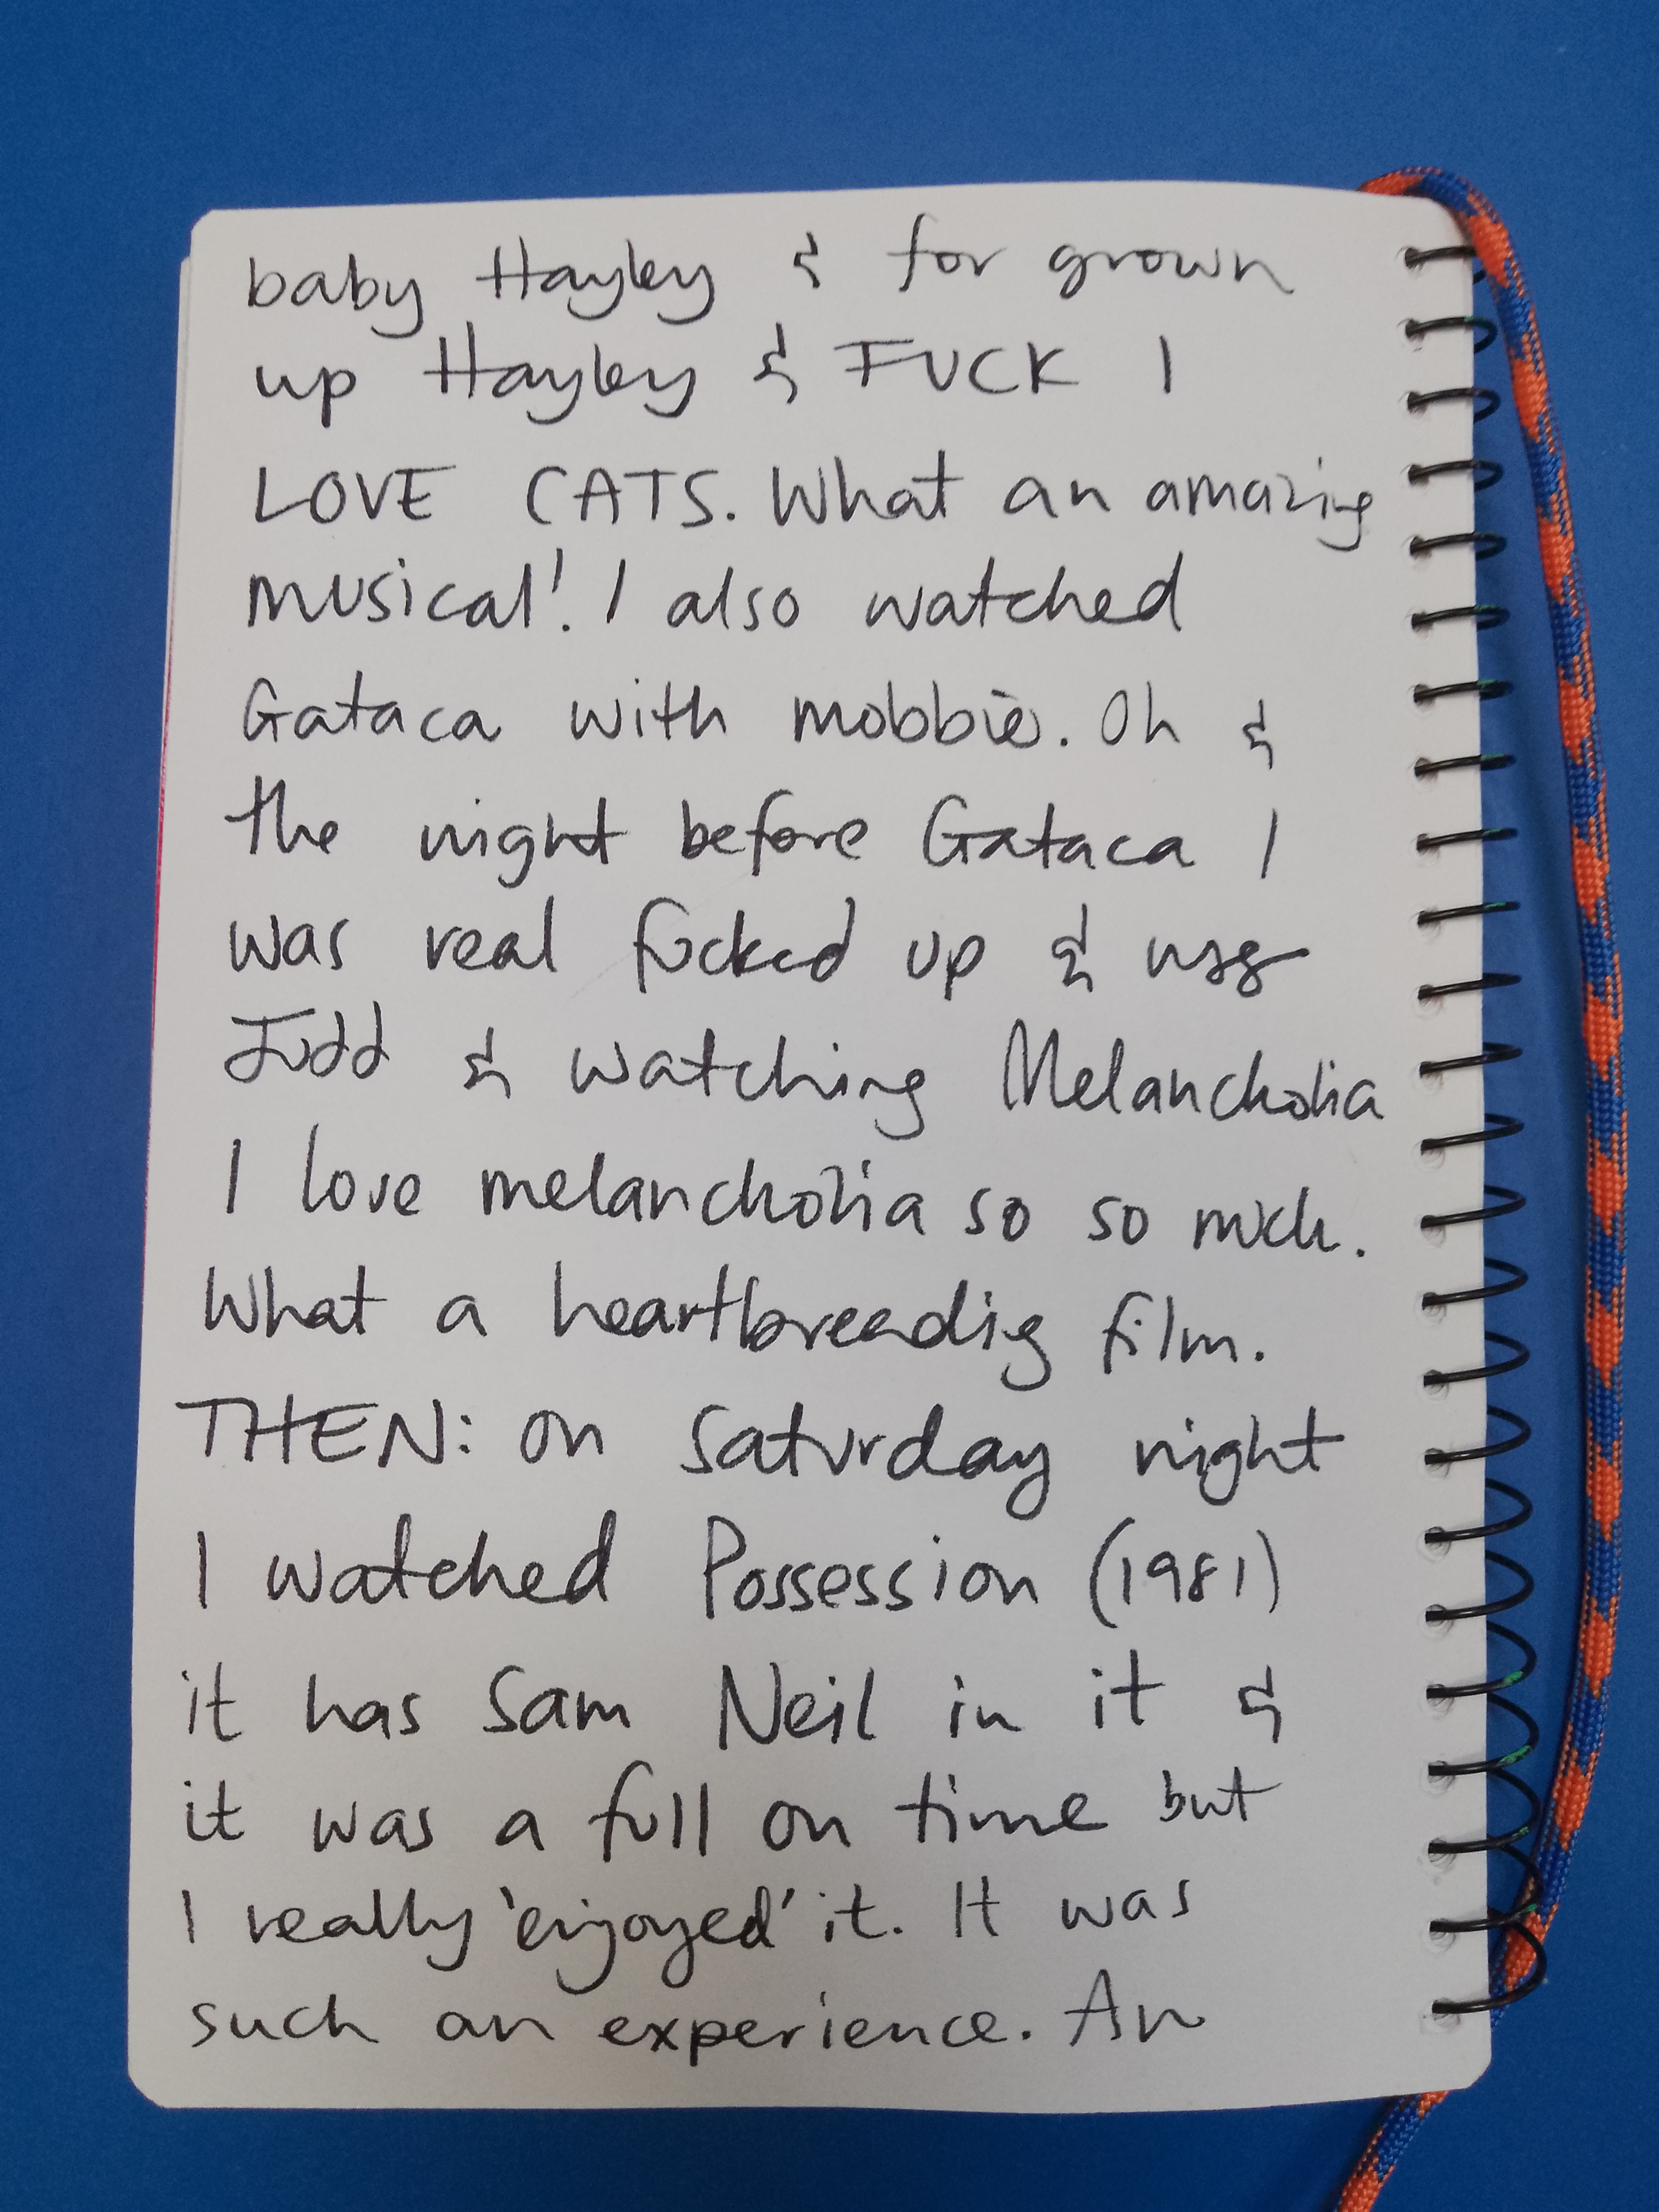 baby Hayley & for grown
up Hayley & FUCK I
LOVE CATS. What an amazing
musical! I also watched
Gataca with mobbie. Oh &
the night before Gataca I
was real fucked up & msg
Judd & watching Melancholia
I love melancholia so so much.
What a heartbreading film.
THEN: on Saturday night
I watched Possession (1981)
it has Sam Neil in it &
it was a full on time but
I really 'enjoyed' it. It was
such an experience. An